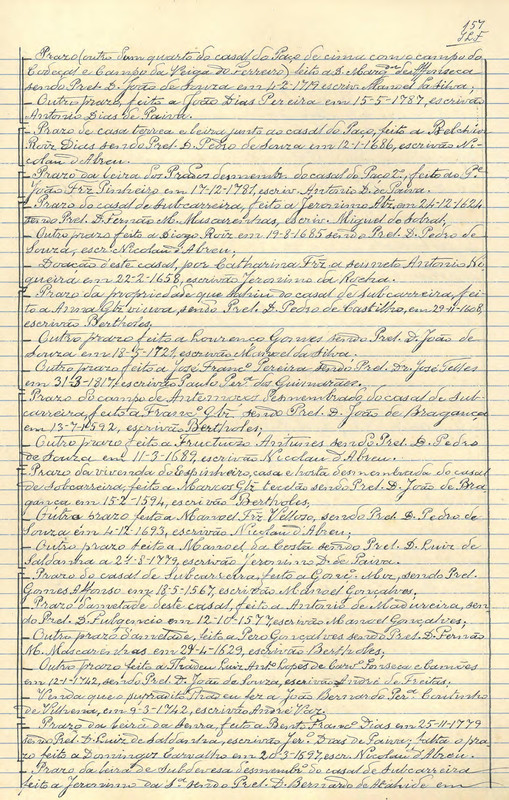 157
- Prazo (outro d'um quarto do casal do Paço de cima com o campo do
Codeçal e Campo da Veiga do Ferreiro) feito a D. Marg. de Affonseca
sendo Prel. D. João de Souza em 4-2-1719 escriv. Manoel da Silva;
- Outro prazo, feito a João Dias Pereira em 15-5-1787, escrivão
Antonio Dias de Paiva.
- Prazo de casa torrea e leira junto ao casal do Paço, feito a Belchior
Roiz Dias sendo Prel. D. Pedro de Souza em 12-1-1686, escrivão Ni-
colau d'Abreu.
- Prazo da leira dos Prados desmembr. do casal do Paço, feito ao Pe.
João Frz Pinheiro em 17-12-1781, escriv. Antonio D. de Paiva.
- Prazo do casal de Subcarreira, feito a Jeronimo Alz, em 24-12-1624
sendo Prel. D. Fernão M. Mascarenhas, escriv. Miguel do Sobral;
- Outro prazo feito a Diogo Roiz em 19-8-1685 sendo Prel. D. Pedro de
Souza, escr. Nicolau d'Abreu.
Doação d'este casal, por Catharina Frz a seu neto Antonio No-
gueira em 22-2-1658, escrivão Jeronimo da Rocha.
- Prazo da propriedade que sahiu do casal de Subcarreira, fei-
to a Anna Glz viuva, sendo Prel. D. Pedro de Castilho, em 29-11-1608,
escrivão Bertholes,
- Outro prazo feito a Lourenço Gomes sendo Prel. D. João de
Souza em 18-5-1721, escrivão Manoel da Silva.
- Outro prazo feito a José Franc. Pereira sendo Prel. Dr. José Telles
em 31-3-1817, escrivão Paulo Per. dos Guimarães.
- Prazo do campo de Antemoros desmembrado do casal de Sub-
carreira, feito a Franc. Glz sendo Prel. D. João de Bragança
em 13-7-1592, escrivão Bertholes;
- Outro prazo feito a Fructuozo Antunes sendo Prel. D. Pedro
de Souza em 11-3-1689, escrivão Nicolau d'Abreu.
- Prazo da vivenda do Espinheiro, casa e horta desmembrada do casal
de Subcarreira, feito a Marcos Glz tecelão sendo Prel. D. João de Bra-
gança em 15-2-1594, escrivão Bertholes;
- Outro prazo feito a Manoel Frz Velloso, sendo Prel. D. Pedro de
Souza em 4-12-1693, escrivão Nicolau d'Abreu;
- Outro prazo feito a Manoel da Costa sendo Prel. D. Luiz de
Saldanha a 27-8-1779, escrivão Jeronimo D. de Paiva.
- Prazo de casal de Subcarreira, feito a Gonç. Miz, sendo Prel.
Gomes Affonso em 18-5-1567, escrivão Manoel Gonçalves,
- Prazo da metade deste casal, feito a Antonio de Madureira, sen
do Prel. D. Fulgencio em 12-10-1577, escrivão Manoel Gonçalves;
- Outro prazo da metade, feito a Pero Gonçalves sendo Prel. D. Fernão
M. Mascarenhas em 27-4-1629, escrivão Bertholes;
- Outro prazo feito a Thadeu Luiz Ant. Lopes de Carv. Fonseca e Camões
em 12-1-1742, sendo Prel. D. João de Souza, escrivão André de Freitas;
Venda que o supradito Thadeu fez a João Bernardo Per. Coutinho
de Vilhena, em 9-3-1742, escrivão André Vaz;
- Prazo da leira da Senra, feito a Bento Franc. Dias em 25-11-1779
sendo Prel. D. Luiz de Saldanha, escrivão Jer. Dias de Paiva; falta o pra
zo feito a Domingos Carvalho em 20-3-1697, escr. Nicolau d'Abreu.
- Prazo da leira de Subdevesa desmembr. do casal de Subcarreira
feito a Jeronimo da S. sendo Prel. D. Bernardo de Ataide em